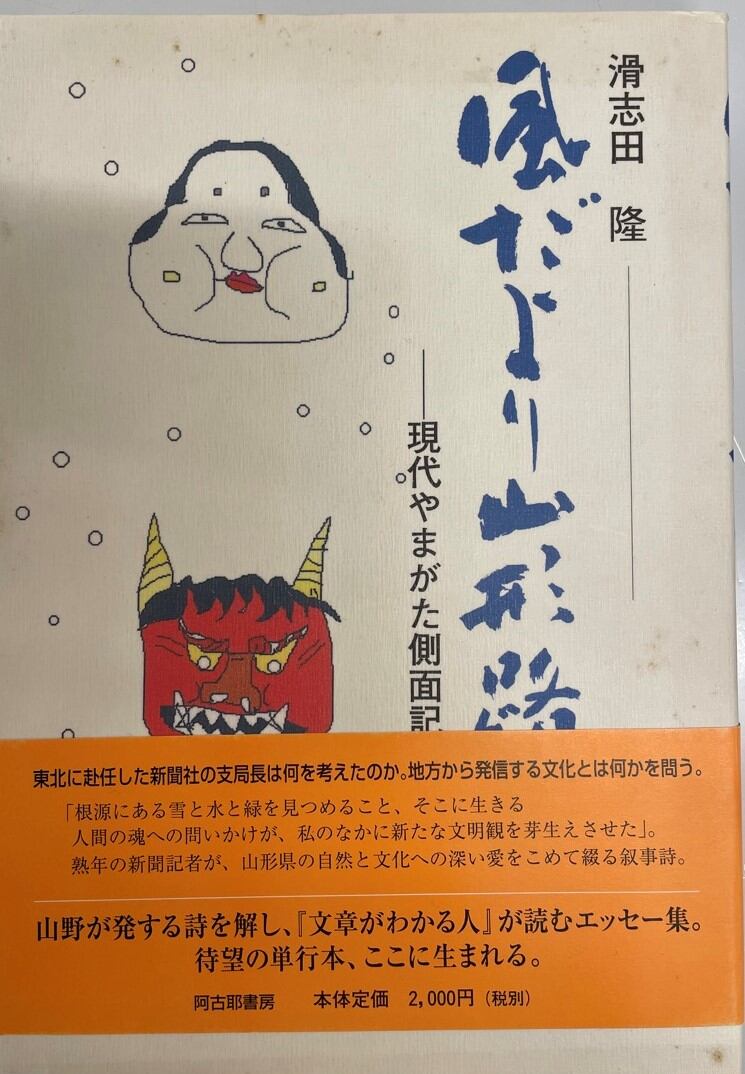 滑志田 隆
風だより山形路
――現代やまがた側面記
東北に赴任した新聞社の支局長は何を考えたのか。地方から発信する文化とは何かを問う。
「根源にある雪と水と緑を見つめること、そこに生きる
人間の魂への問いかけが、私のなかに新たな文明観を芽生えさせた」。
熟年の新聞記者が、山形県の自然と文化への深い愛をこめて綴る叙事詩。
山野が発する詩を解し、『文章がわかる人』が読むエッセー集。
待望の単行本、ここに生まれる。
阿古耶書房 本体定価 2,000円（税別）